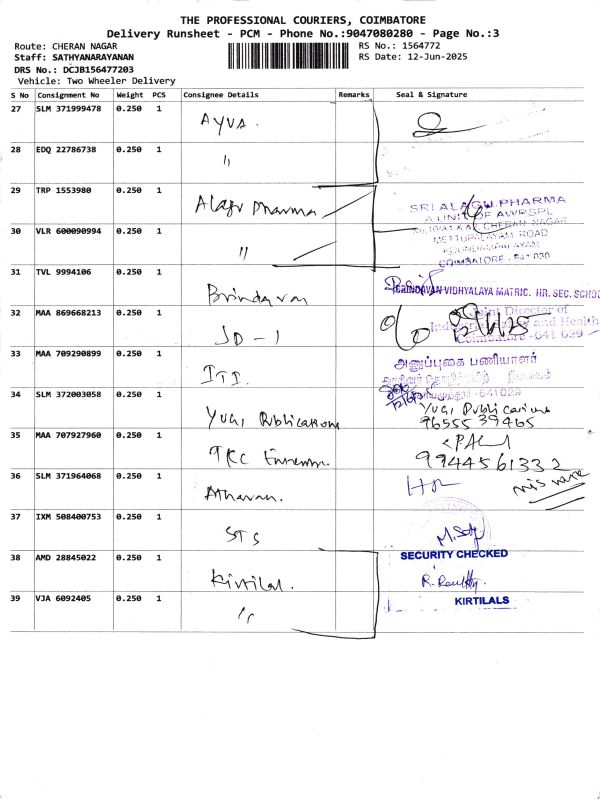 THE PROFESSIONAL COURIERS, COIMBATORE
Delivery Runsheet - PCM - Phone No.:9047080280 - Page No.:3
Route: CHERAN NAGAR
RS No.: 1564772
Staff: SATHYANARAYANAN
RS Date: 12-Jun-2025
DRS No.: DCJB156477203
Vehicle: Two Wheeler Delivery
S No Consignment No Weight PCS Consignee Details Remarks Seal & Signature
27 SLM 371999478 0.250 1 AYVA.
28 EDQ 22786738 0.250 1 "
29 TRP 1553980 0.250 1 Alagu Pharma
SRI ALAGU PHARMA
A UNIT OF AWPSPL
CHERAN NAGAR
30 VLR 600090994 0.250 1 "
METTUPALAYAM ROAD
KOUNDAMPALAYAM
COIMBATORE - 641 030
31 TVL 9994106 0.250 1 Brindavan
BRINDAVAN VIDHYALAYA MATRIC. HR. SEC. SCHOOL
32 MAA 869668213 0.250 1 JD - 1
Joint Director of
and Health
Coimbatore - 641 029
33 MAA 709290899 0.250 1 ITI
அனுப்புகை பணியாளர்
641029
34 SLM 372003058 0.250 1 Yugi Publications
Yugi Publications
9655539465
35 MAA 707927960 0.250 1 TKC
9944561332
36 SLM 371964068 0.250 1 Atharvan.
37 IXM 508400753 0.250 1 STS
SECURITY CHECKED
38 AMD 28845022 0.250 1 Kirtilal.
39 VJA 6092405 0.250 1 "
KIRTILALS